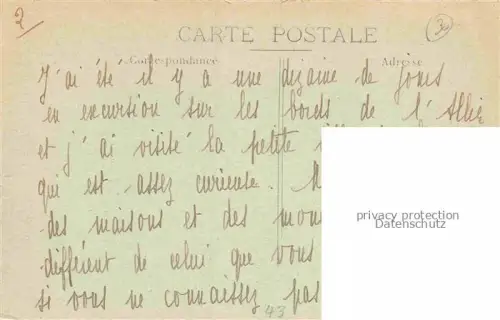 2
3
CARTE POSTALE
Correspondance
Adresse
J'ai été il y a une dizaine de jours
en excursion sur les bords de l'Allier
et j'ai visité la petite
qui est assez curieuse.
des maisons et des
différent de celui que vous
si vous ne connaissez pas
43
privacy protection
Datenschutz